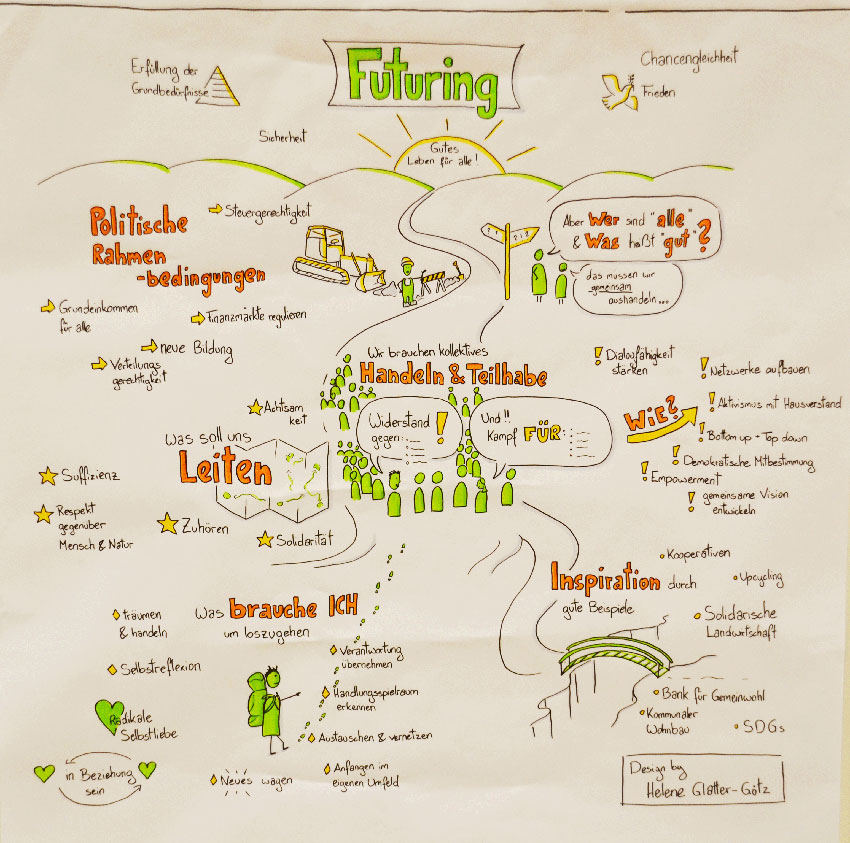 Futuring
Erfüllung der
Grundbedürfnisse
Chancengleichheit
Frieden
Sicherheit
Gutes
Leben für alle!
Politische
Rahmen
-bedingungen
Steuergerechtigkeit
Grundeinkommen
für alle
Finanzmärkte regulieren
neue Bildung
Verteilungs
gerechtigkeit
Aber Wer sind "alle"
& Was heißt "gut"?
das müssen wir
gemeinsam
aushandeln...
Wir brauchen kollektives
Handeln & Teilhabe
Widerstand
gegen:
!
Und!!
Kampf FÜR:
WiE?
! Dialogfähigkeit
stärken
! Netzwerke aufbauen
! Aktivismus mit Hausverstand
! Bottom up + Top down
! Demokratische Mitbestimmung
! Empowerment
! gemeinsame Vision
entwickeln
Was soll uns
Leiten
Achtsam
keit
Suffizienz
Respekt
gegenüber
Mensch & Natur
Zuhören
Solidarität
Was brauche ICH
um loszugehen
träumen
& handeln
Selbstreflexion
Radikale
Selbstliebe
in Beziehung
sein
Neues wagen
Verantwortung
übernehmen
Handlungsspielraum
erkennen
Austauschen & vernetzen
Anfangen im
eigenen Umfeld
Inspiration durch
gute Beispiele
Kooperativen
Upcycling
Solidarische
Landwirtschaft
Bank für Gemeinwohl
Kommunaler
Wohnbau
SDGs
Design by
Helene Glatter-Götz